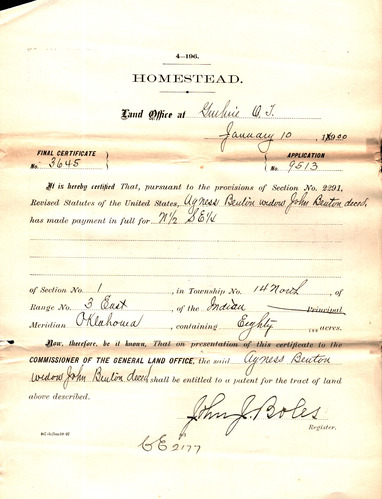 4—196.
HOMESTEAD.
Land Office at Guthrie O.T.
January 10, 1900
FINAL CERTIFICATE
No. 3645
APPLICATION
No. 9513
It is hereby certified That, pursuant to the provisions of Section No. 2291,
Revised Statutes of the United States, Agness Benton widow John Benton decd,
has made payment in full for N½ SE¼
of Section No. 1, in Township No. 14 North, of
Range No. 3 East of the Indian Principal
Meridian Oklahoma, containing Eighty acres.
Now, therefore, be it known, That on presentation of this certificate to the
COMMISSIONER OF THE GENERAL LAND OFFICE, the said Agness Benton
widow John Benton decd shall be entitled to a patent for the tract of land
above described.
John J. Boles
Register.
2177